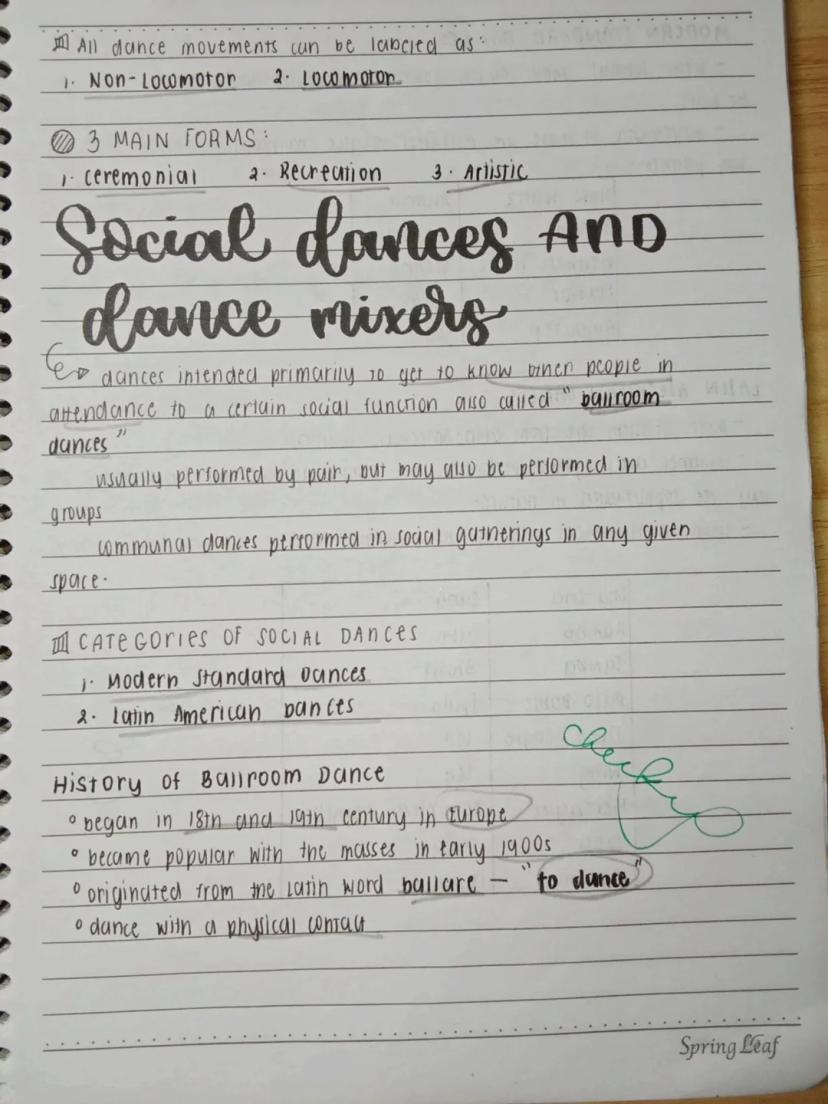 All dance movements can be labeled as:
1. Non-Locomotor 2. Locomotor
3 MAIN FORMS:
1. ceremonial 2. Recreation 3. Artistic
Social dances AND
dance mixers
dances intended primarily to get to know other people in
attendance to a certain social function also called "ballroom
dances"
usually performed by pair, but may also be performed in
groups
communal dances performed in social gatherings in any given
space.
CATEGORIES OF SOCIAL DANCES
1. Modern Standard Dances
2. Latin American Dances
Checked
History of Ballroom Dance
° began in 18th and 19th century in Europe
° became popular with the masses in early 1900s
° originated from the Latin word ballare – "to dance"
° dance with a physical contact
Spring Leaf